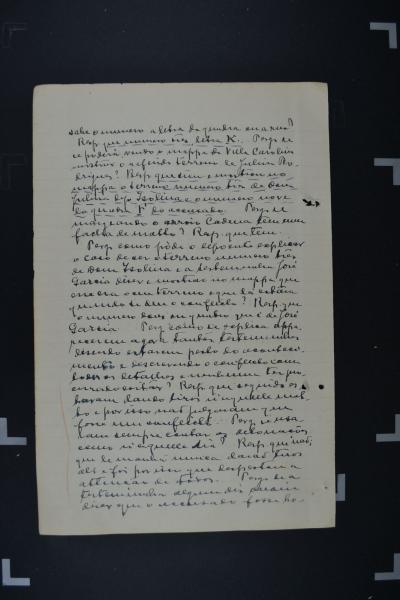 sabe o numero e letra da quadra ou a rua?
Resp. que numero tres, letra K. Perg. se
poderá, vendo o mappa de Villa Carolina
mostrar o referido terreno de Julia Ro-
drigues? Resp. que sim e mostrou no
mappa o terreno numero tres de Dona
Julia e o numero nove
da quadra F do accusado. Perg. se
margeando o arroio Cadena tem um
facha de matto? Resp. que tem.
Perg. como póde o depoente explicar
o caso de ser o terreno numero tres
de Dona e a testemunha José
Garcia dizer e mostrar no mappa que
era o terreno que da estava
quando se deu o conflicto? Resp. que
o numero dois da quadra que é de José
Garcia. Perg. como se explica appa-
recerem agora tantas testemunhas
dizendo estarem perto do aconteci-
mento e descrevendo o conflicto com
todos os detalhes e nenhuma ter pro-
curado evitar? Resp. que seguido es-
tavam dando tiros n'aquelle mat-
to e por isso não julgaram que
fosse um conflicto. Perg. se usa-
vam sempre contar as detonações
como n'aquelle dia? Resp. que não;
que de manhã nunca davam tiros
ali e foi por isso que despertou a
attenção de todos. Perg. se a
testemunha alguem diz
dizer que o accusado fosse ho-